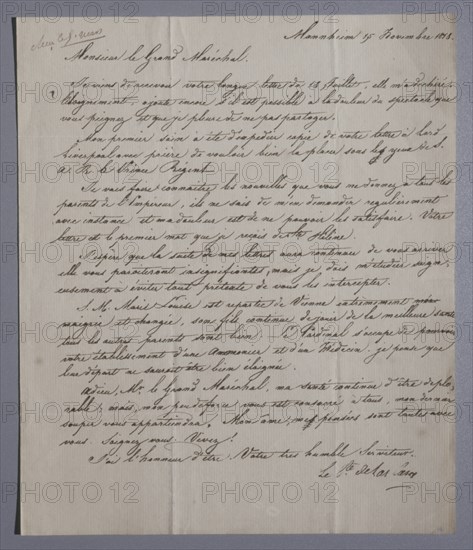 Mannheim 15 Novembre 1818.
Monsieur le Grand Maréchal.
Je viens de recevoir votre longue lettre du 13 Juillet, elle m'a déchiré
l'éloignement, ajoute encore s'il est possible à la douleur du spectacle que
vous peignez et que je pleure de ne pas partager.
Mon premier soin a été d'expédier copie de votre lettre à Lord
Liverpool avec prière de vouloir bien la placer sous les yeux de S.
A. R. le Prince Régent.
Je vais faire connaître les nouvelles que vous me donnez à tous les
parents de l'Empereur, ils ne cessent de m'en demander régulièrement
avec instance et ma douleur est de ne pouvoir les satisfaire. Votre
lettre est le premier mot que je reçois de Ste Hélène.
J'espère que la suite de mes lettres aura continué de vous arriver,
elles vous paroitront insignifiantes, mais je dois m'étudier soign-
eusement à éviter tout prétexte de vous les intercepter.
S. M. Marie Louise est repartie de Vienne extrêmement
maigrie et changée, son fils continue de jouir de la meilleure santé
tous les autres parents sont bien. Le Cardinal s'occupe de pourvoir
votre établissement d'un Aumonier et d'un Médecin, je pense que
leur départ ne saurait être bien éloigné.
Adieu, Mr. le Grand Maréchal, ma santé continue d'être déplo-
rable; mais, mon peu de force vous est consacré à tous, mon dernier
soupir vous appartiendra. Mon ame, mes pensées sont toutes avec
vous. Soignez vous Vivez!
J'ai l'honneur d'être Votre très humble Serviteur.
Le Cte. de Las Cases
PHOTO 12